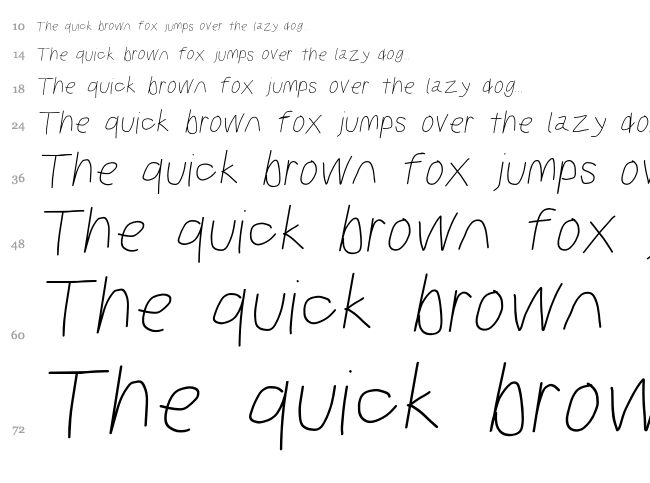 10 The quick brown fox jumps over the lazy dog...
14 The quick brown fox jumps over the lazy dog...
18 The quick brown fox jumps over the lazy dog...
24 The quick brown fox jumps over the lazy do
36 The quick brown fox jumps ov
48 The quick brown fox
60 The quick brown
72 The quick brow